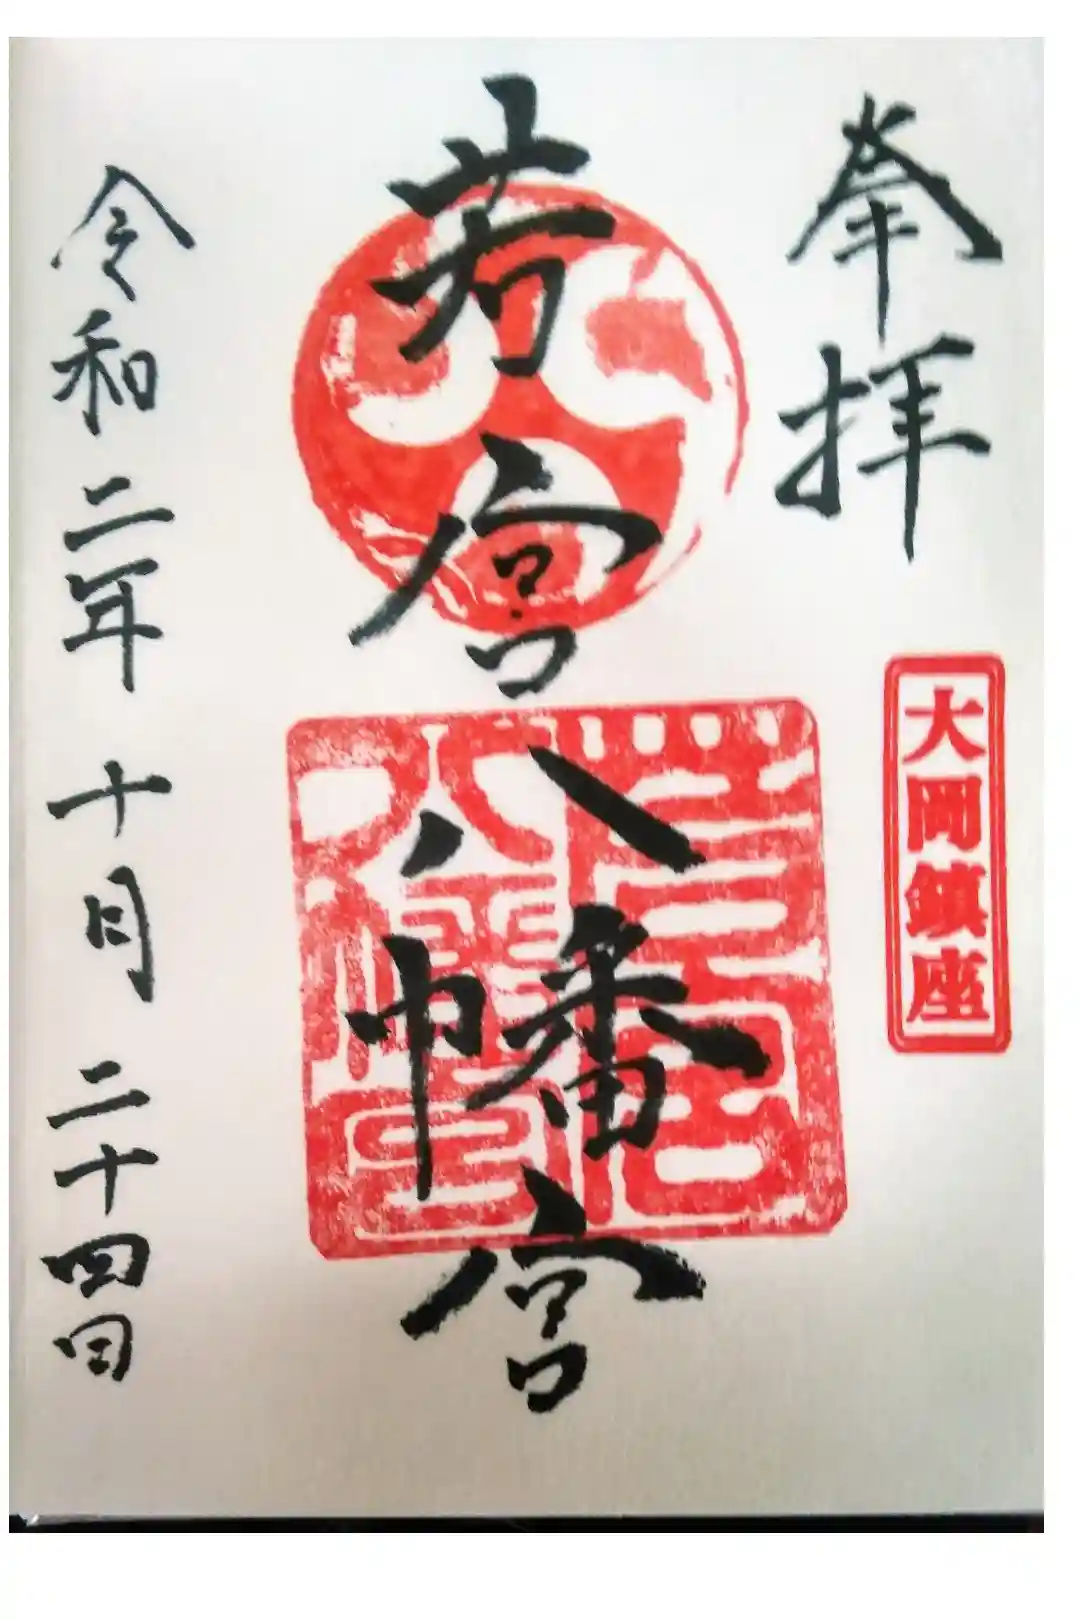 奉拝
大岡鎮座
若宮八幡宮
若宮
八幡宮
令和二年十月二十四日